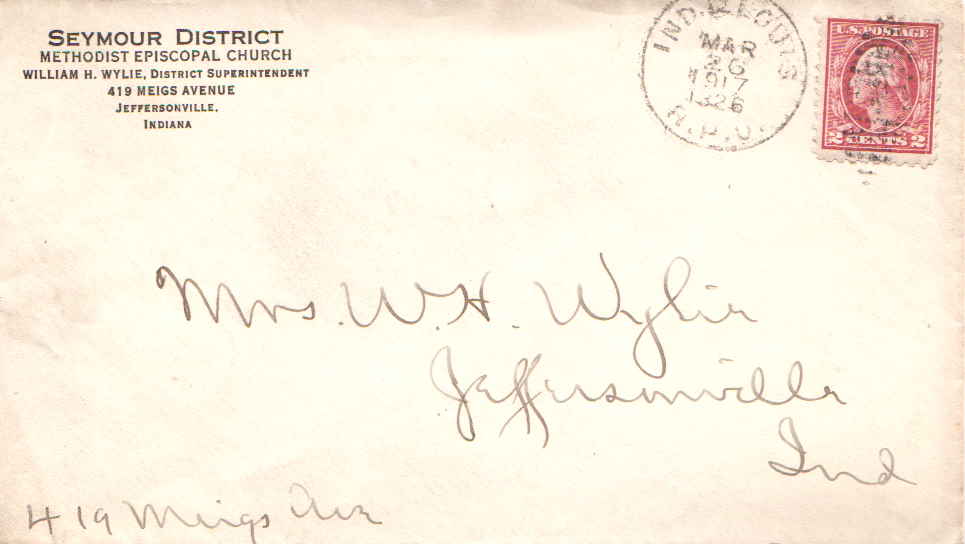 SEYMOUR DISTRICT
METHODIST EPISCOPAL CHURCH
WILLIAM H. WYLIE, DISTRICT SUPERINTENDENT
419 MEIGS AVENUE
JEFFERSONVILLE,
INDIANA
MAR
26
1917
1326
R.P.O.
U.S. POSTAGE
2 CENTS 2
Mrs. W. H. Wylie
Jeffersonville
Ind
419 Meigs Ave